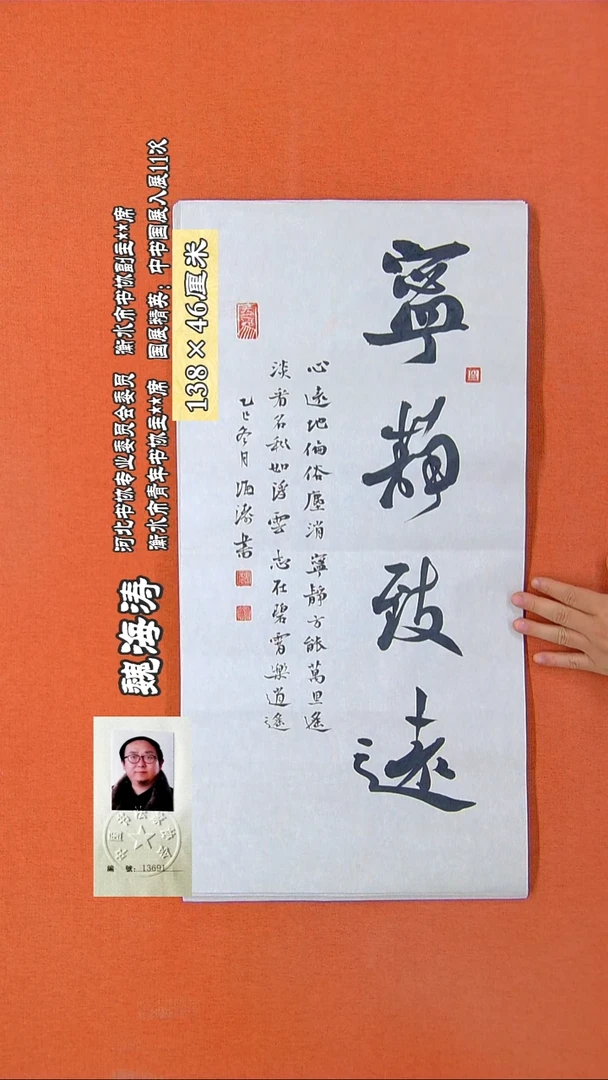 寧
靜
致
遠
心遠地偏俗塵消寧靜方能萬里遙
淡看名利如浮雲志在碧霄樂道遙
乙巳冬月海濤書
138×46厘米
魏海涛
河北书协专业委员会委员 衡水市书协副主**席
衡水市青年书协主**席 国展精英：中书国展入展11次
編 號：13691